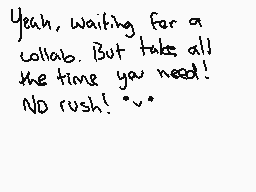 Yeah, waiting for a
collab. But take all
the time you need!
No rush! •v•